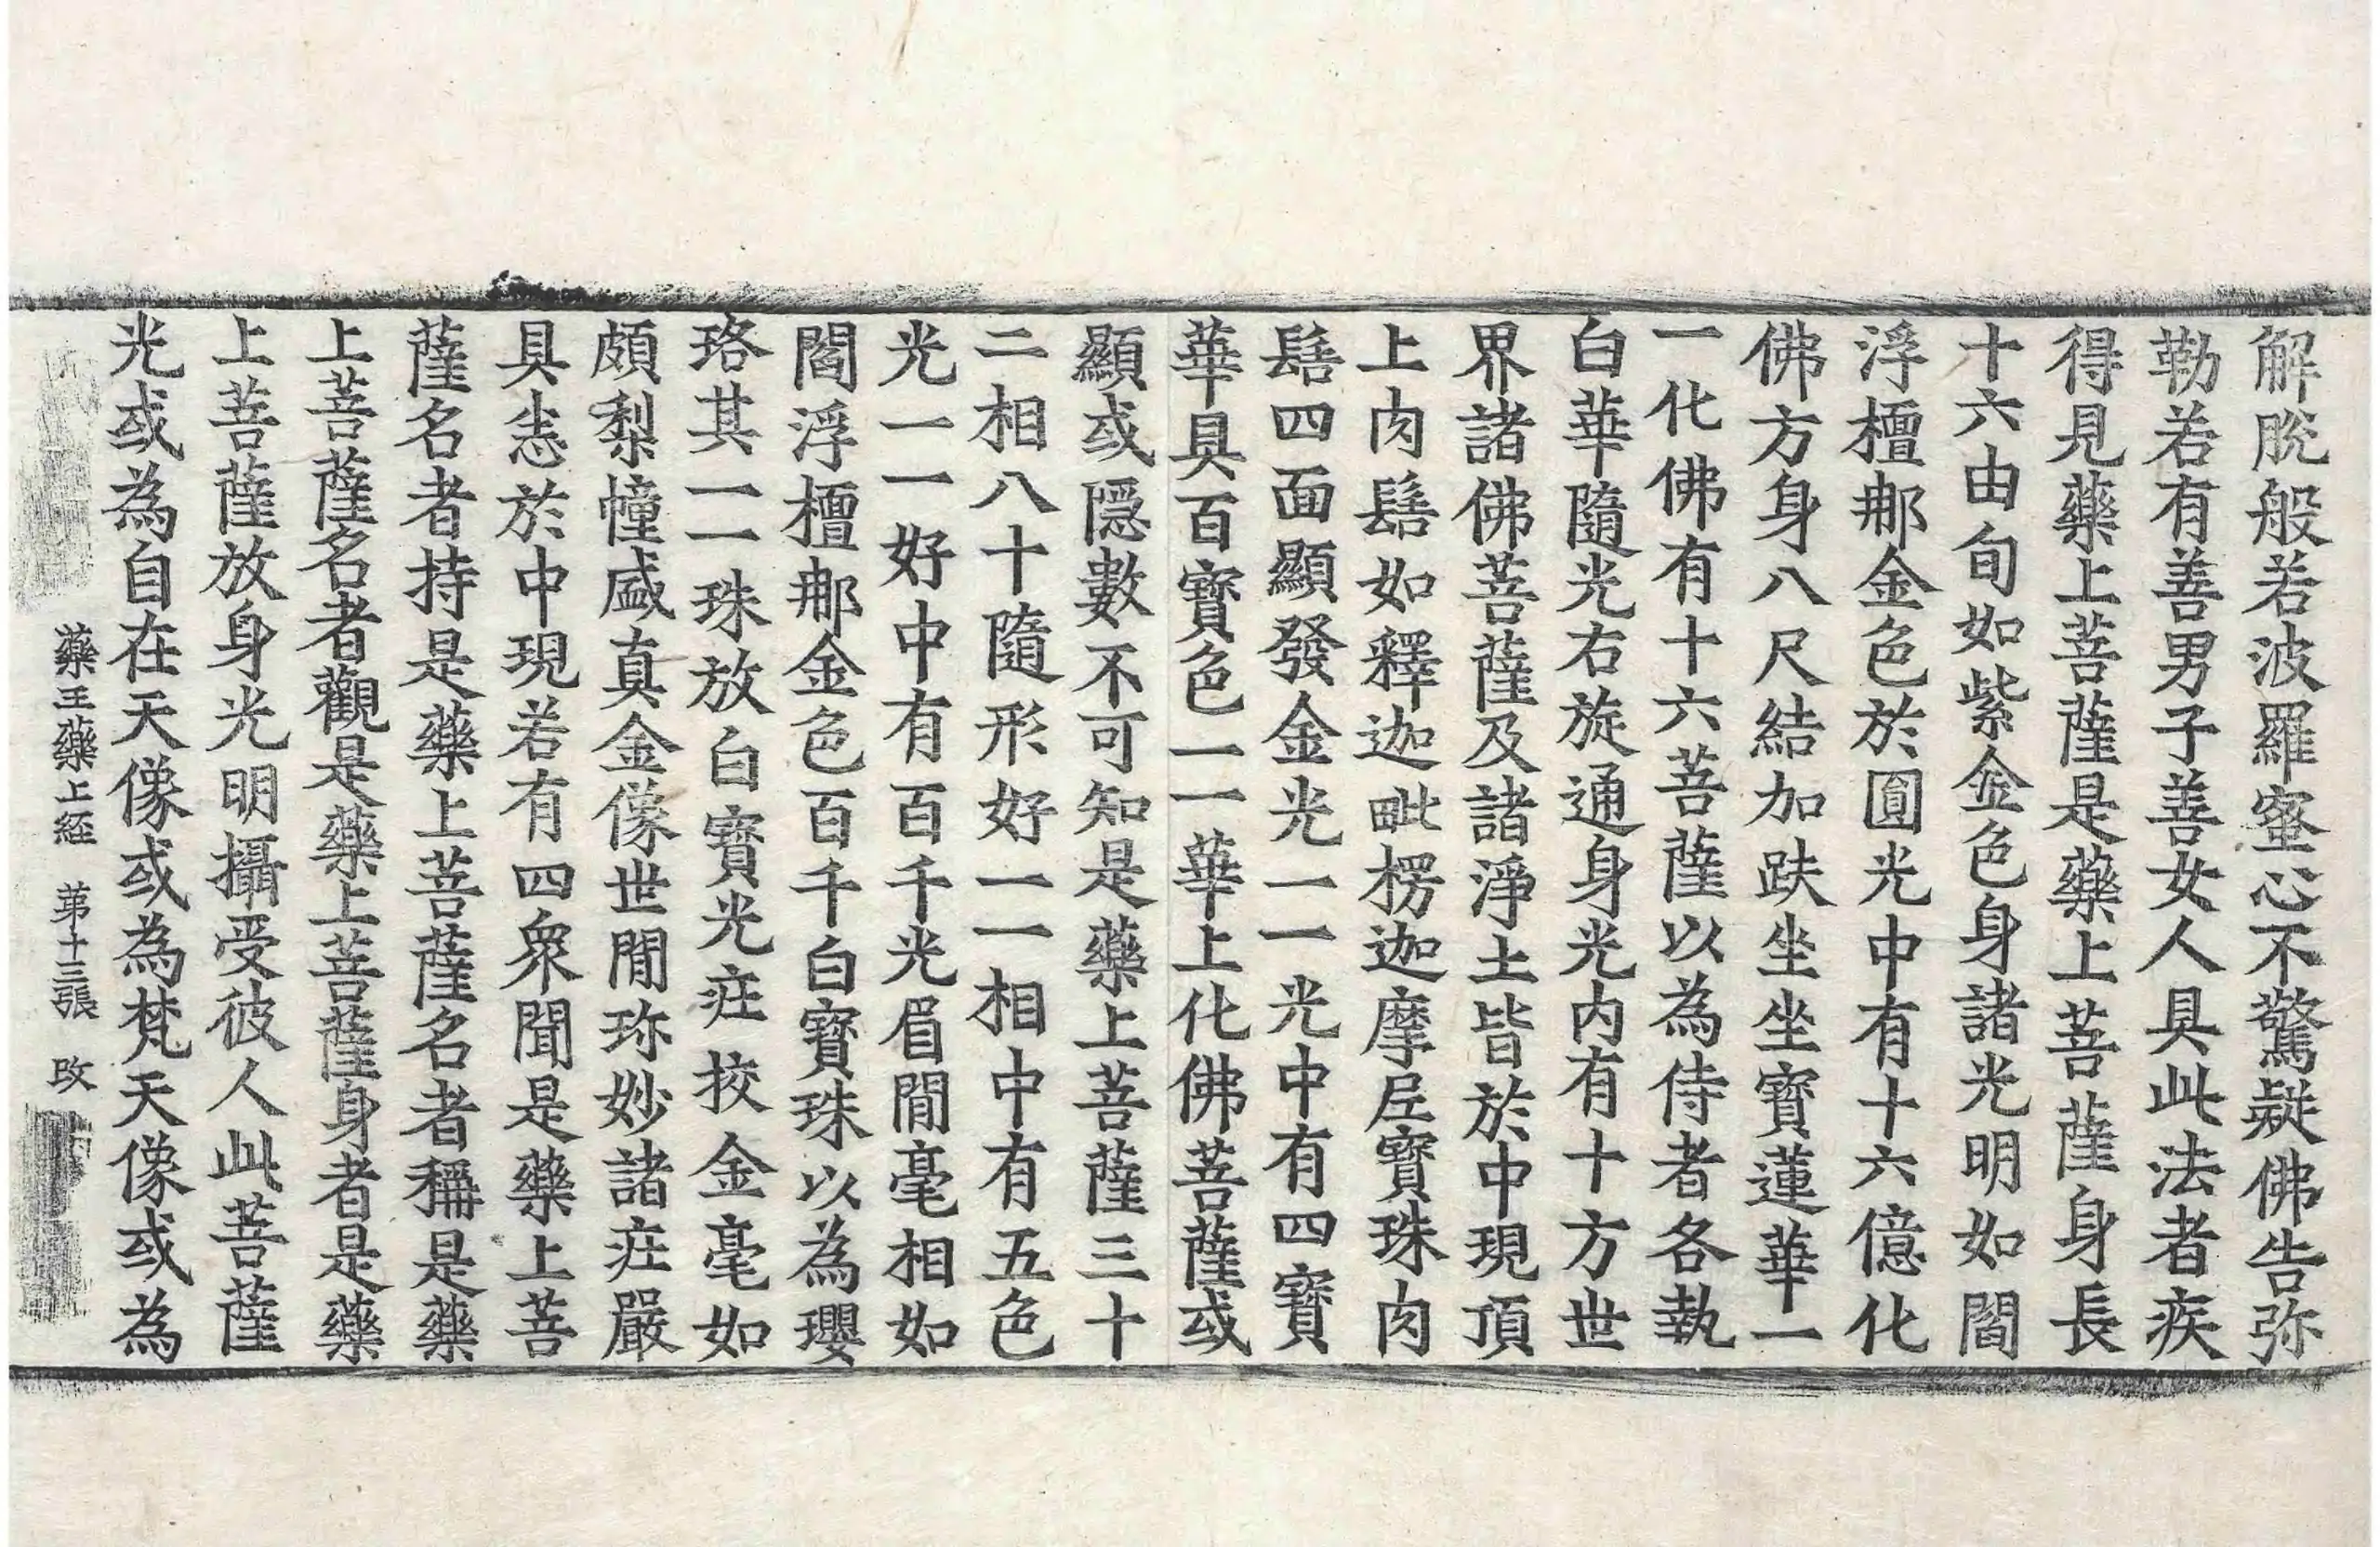 解脫般若波羅蜜心不驚疑佛告弥
勒若有善男子善女人具此法者疾
得見藥上菩薩是藥上菩薩身長
十六由旬如紫金色身諸光明如閻
浮檀那金色於圓光中有十六億化
佛方身八尺結加趺坐坐寶蓮華一
一化佛有十六菩薩以為侍者各執
白華隨光右旋通身光內有十方世
界諸佛菩薩及諸淨土皆於中現頂
上肉髻如釋迦毗楞迦摩尼寶珠肉
髻四面顯發金光一一光中有四寶
華具百寶色一一華上化佛菩薩或
顯或隱數不可知是藥上菩薩三十
二相八十隨形好一一相中有五色
光一一好中有百千光眉間毫相如
閻浮檀那金色百千白寶珠以為瓔
珞其一一珠放白寶光莊挍金毫如
頗梨幢盛真金像世間珎妙諸莊嚴
具悉於中現若有四眾聞是藥上菩
薩名者持是藥上菩薩名者稱是藥
上菩薩名者觀是藥上菩薩身者是藥
上菩薩放身光明攝受彼人此菩薩
光或為自在天像或為梵天像或為
藥王藥上經　苐十三張　改